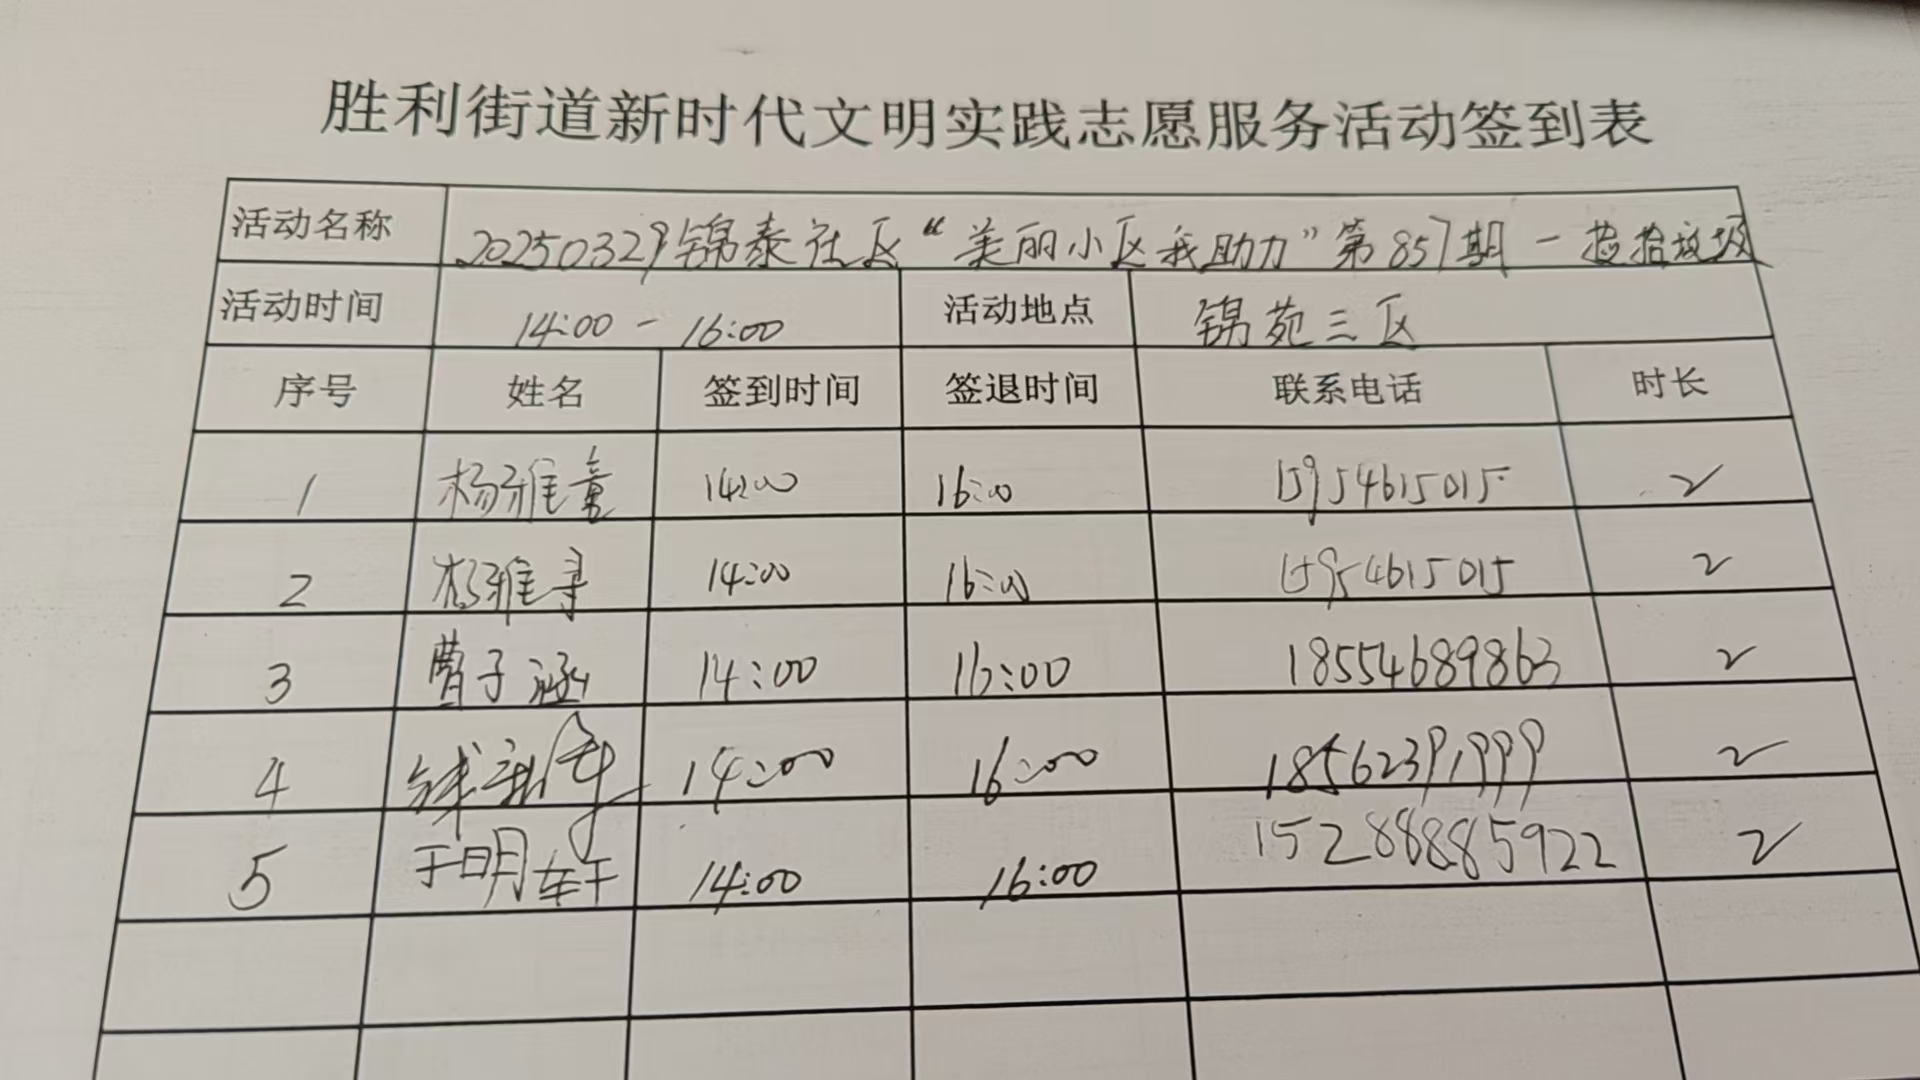 胜利街道新时代文明实践志愿服务活动签到表
活动名称 20250329锦泰社区“美丽小区我助力”第857期-捡拾垃圾
活动时间 14:00-16:00 活动地点 锦苑三区
序号 姓名 签到时间 签退时间 联系电话 时长
1 杨雅童 14:00 16:00 15954615015 2
2 杨雅寻 14:00 16:00 15954615015 2
3 曹子涵 14:00 16:00 18554689863 2
4 14:00 16:00 18562391999 2
5 于明轩 14:00 16:00 15288885922 2